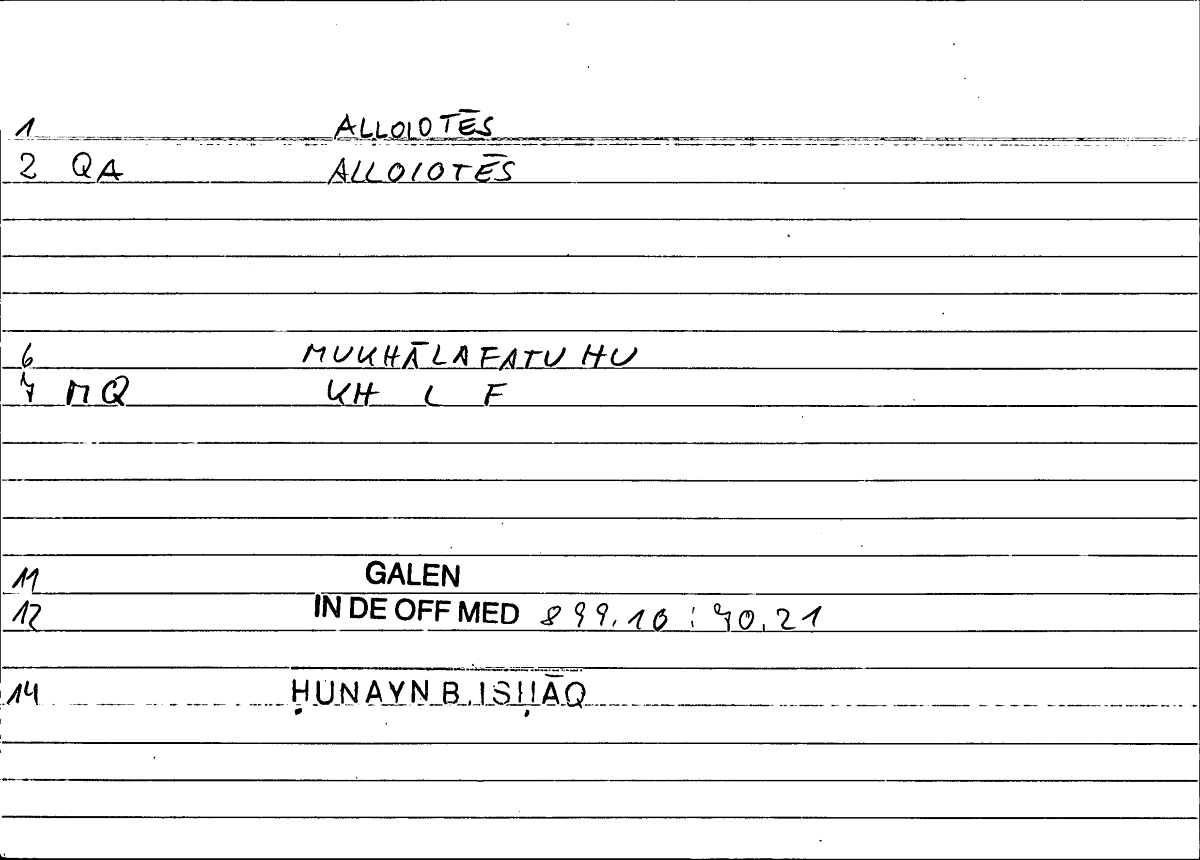 1 ALLOIOTĒS
2 QA ALLOIOTĒS
6 MUKHĀLAFATU HU
7 MQ KH L F
11 GALEN
12 IN DE OFF MED 899.16 : 70.21
14 ḤUNAYN B. ISḤĀQ